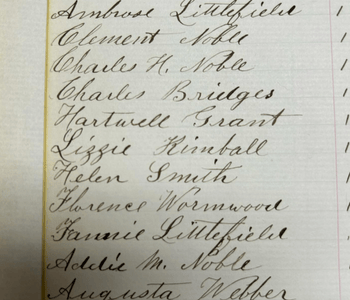 Ambrose Littlefield 1
Clement Noble 1
Charles H. Noble 1
Charles Bridges 1
Hartwell Grant 1
Lizzie Kimball 1
Helen Smith 1
Florence Wormwood 1
Fannie Littlefield 1
Addie M. Noble 1
Augusta Webber 1